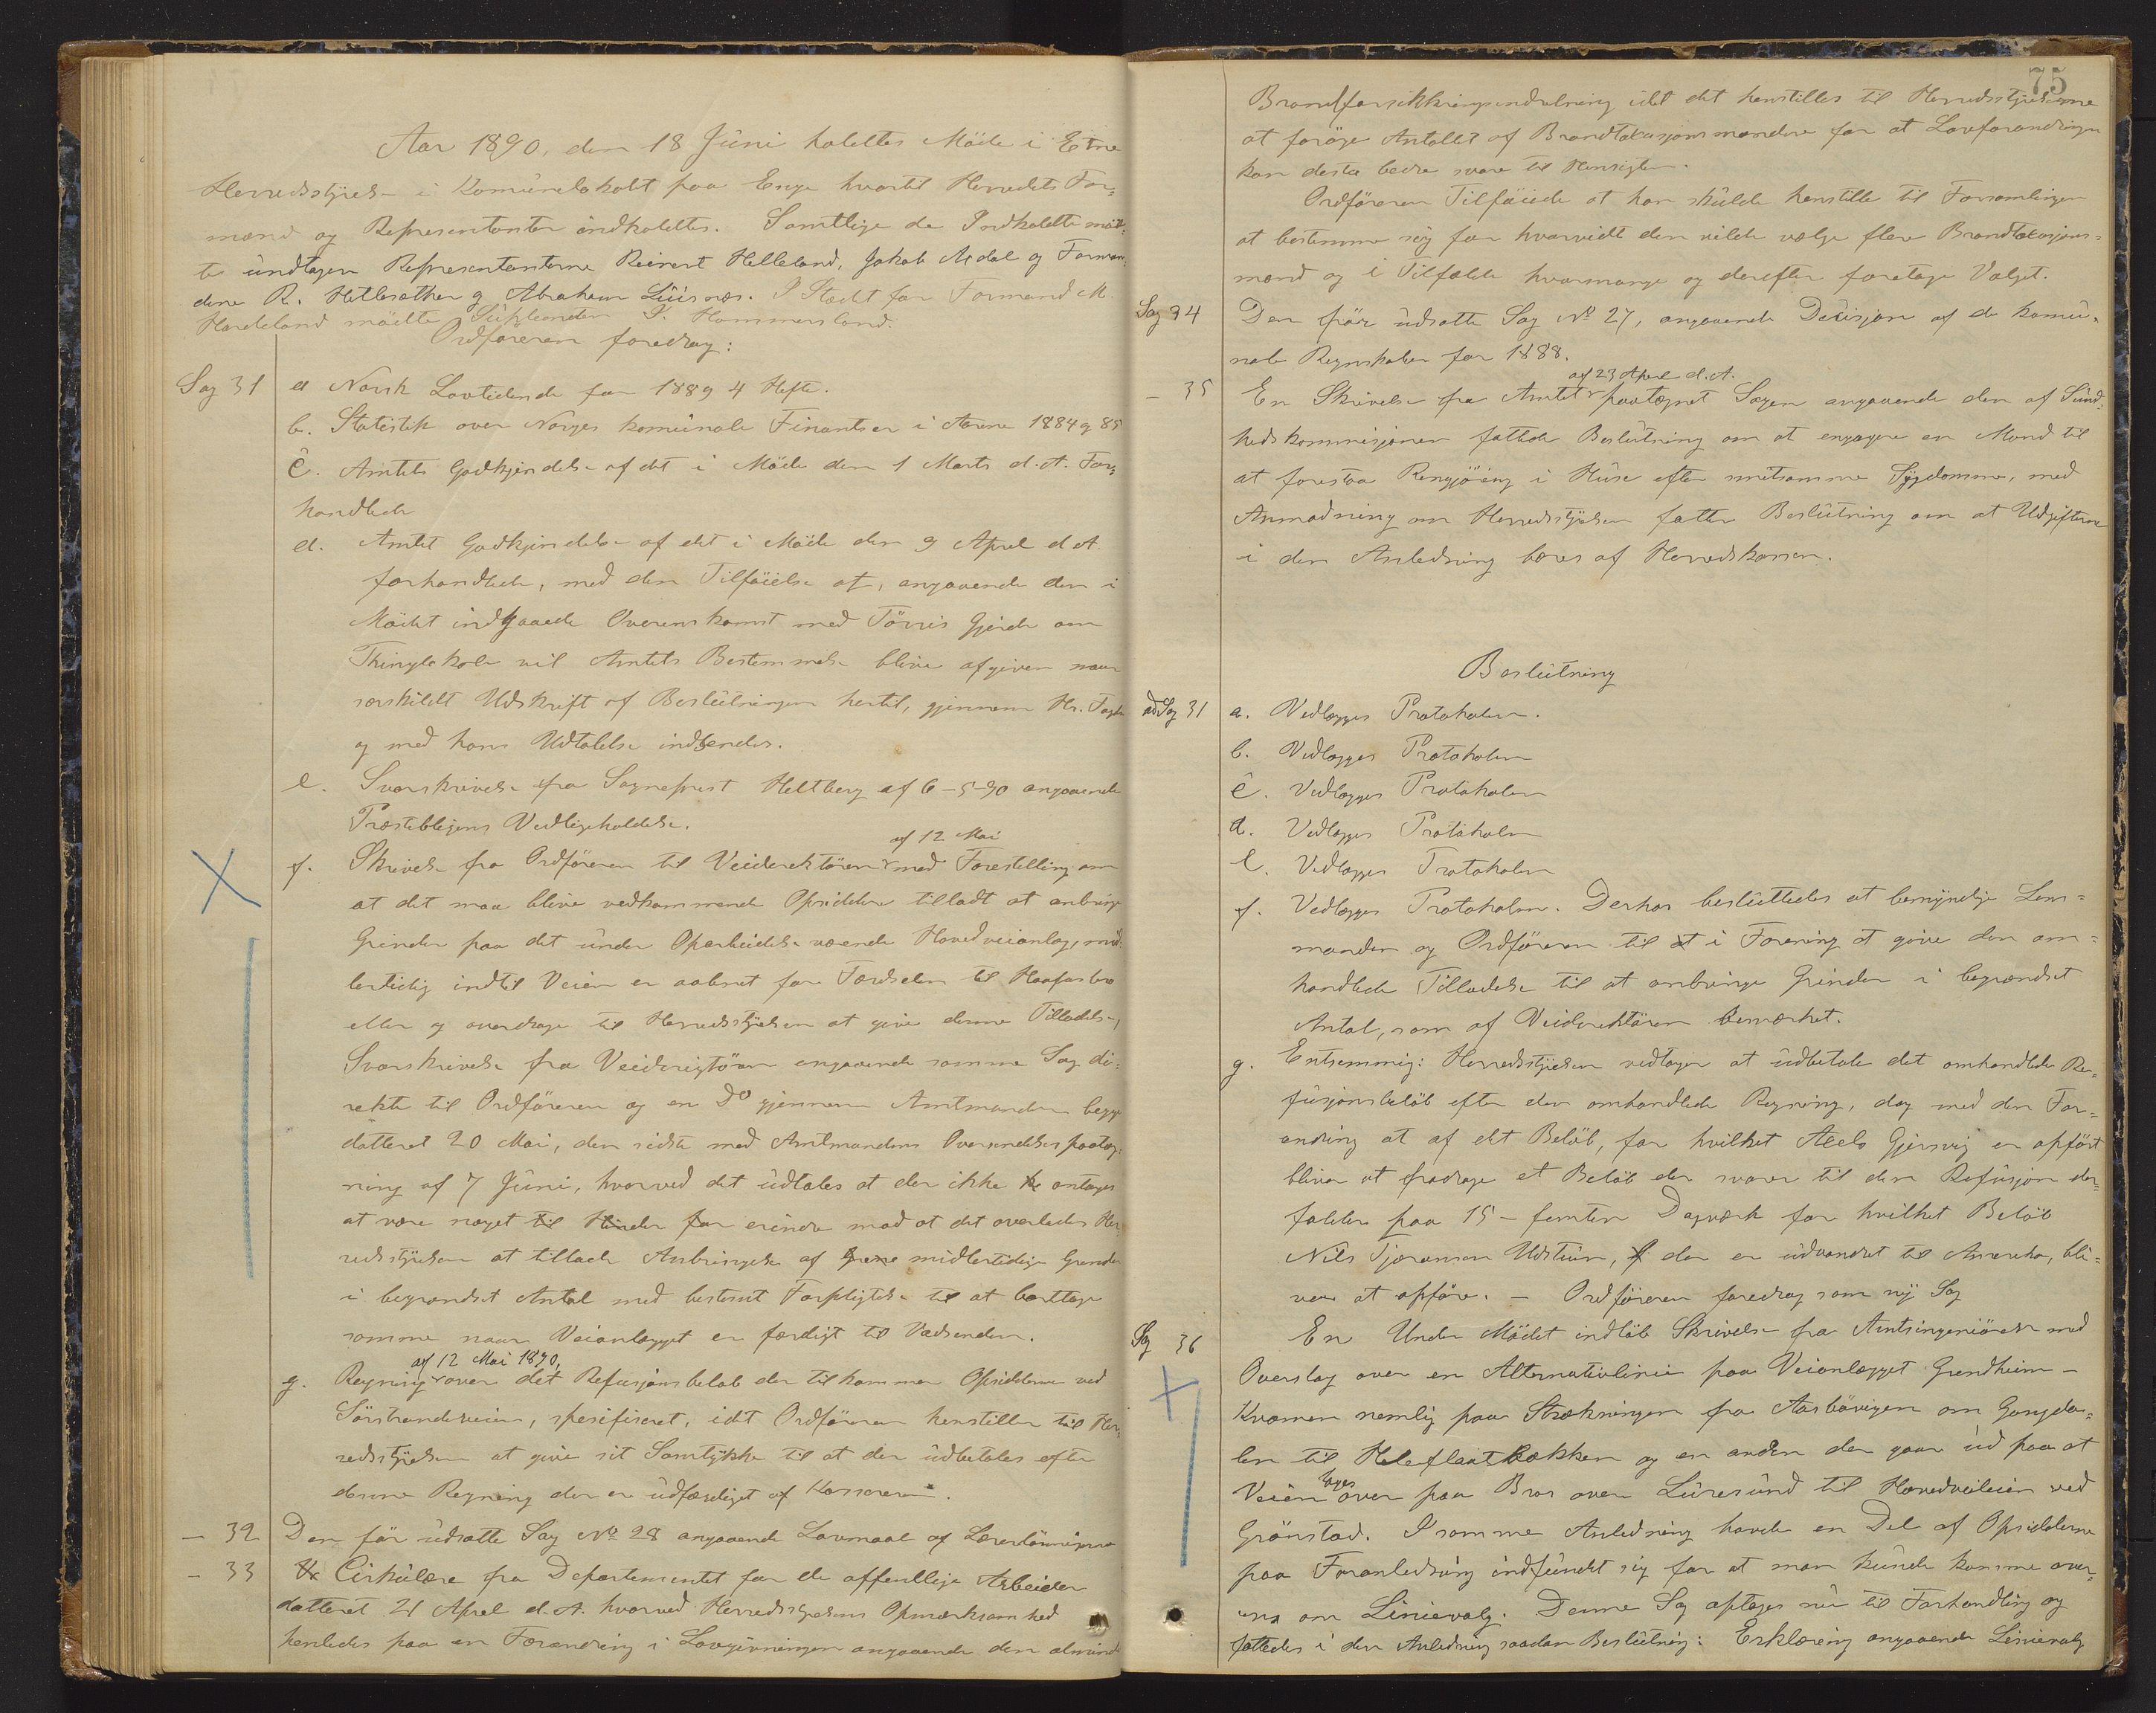 Aar 1890, den 18 Juni holdtes Møde i Etne
Herredsstyrelse i Komunelokalt paa Enge hvortil Herredets For=
mænd og Repræsentanter indkaldtes. Samtlige de Indkaldte mød=
te undtagen Repræsentanterne Reinert Helleland, Jakob Mdal og Forman=
dene R. Hetlesæther og Abraham Lüsnæs. I Stedet for Formand M.
Hardeland mødte Suppleanten P. Hammersland.
Ordføreren foredrog:
Sag 31
a Norsk Lovtidende for 1889 4 Hefte.
b. Statistik over Norges komunale Finantser i Aarene 1884 og 85
c. Amtets Godkjendelse af det i Møde den 1 Marts d. A. For=
handlede
d. Amtets Godkjendelse af det i Møde den 9 April d A
forhandlede, med den Tilføielse at, angaaende den i
Mødet indgaaede Overenskomst med Tørris Gjerde om
Thinglokale vil Amtets Bestemmelse blive afgiven naar
særskildt Udskrift af Beslutningen hertil, gjennem Hr. Fogden
og med hans Udtalelse indsendes.
e. Svarskrivelse fra Sogneprest Heltberg af 6-5-90 angaaende
Præsteboligens Vedligeholdelse.
af 12 Mai
f. Skrivelse fra Ordføreren til Veidirektøren med Forestilling om
at det maa blive vedkommende Opsiddere tilladt at anbringe
Grinder paa det under Oparbeidelse værende Hovedveianlæg, mid=
lertidig indtil Veien er aabnet for Færdselen til Haafasbro
eller og overdrage til Herredsstyrelsen at give denne Tilladelse,
Svarskrivelse fra Veidirigtøren angaaende samme Sag di=
rekte til Ordføreren og en Do gjennem Amtmanden begge
datteret 20 Mai, den sidste med Amtmandens Oversendelsespaateg=
ning af 7 Juni, hvorved det udtales at der ikke antages
at være noget til Hinder for erindre mod at det overlades Her=
redsstyrelsen at tillade Anbringelse af midlertidige Grinder
i begrændset Antal med bestemt Forpligtelse til at borttage
samme naar Veianlægget er færdigt til Vedsenden.
af 12 Mai 1890,
g. Regning over det Refusjonsbeløb der tilkommer Opsidderne ved
Sørstrandsveien, spesifiseret, idet Ordføreren henstiller til Her=
redsstyrelsen at give sit Samtykke til at der udbetales efter
denne Regning der er udfærdiget af Kassereren.
- 32 Den før udsatte Sag No 28 angaaende Lovmaal af Lærerlønningerne
- 33 Cirkulære fra Departementet for de offentlige Arbeider
datteret 21 April d. A. hvorved Herredsstyrelsens Opmærksomhed
henledes paa en Forandring i Lovgivningen angaaende den almind
75
Brandforsikkringsindretning idet det henstilles til Herredsstyrelserne
at forøge Antallet af Brandtakasjonsmændene for at Lovforandringen
kan desto bedre svare til Hensigten.
Ordføreren Tilføiede at han skulde henstille til Forsamlingen
at bestemme sig for hvorvidt den vilde vælge flere Brandtakasjons=
mænd og i Tilfælde hvormange og derefter foretage Valget.
Sag 34
Den før udsatte Sag No 27, angaaende Desisjon af de komu=
nale Regnskaber for 1888.
af 23 April d. A.
- 35
En Skrivelse fra Amtet paategnet Sagen angaaende den af Sund=
hedskommisjonen fattede Beslutning om at engagere en Mand til
at forestaa Rengjøring i Huse efter smitsomme Sygdomme, med
Anmodning om Herredsstyrelsen fatter Beslutning om at Udgifterne
i den Anledning bæres af Herredskassen.
Beslutning
ad Sag 31
a. Vedlægges Protokolen.
b. Vedlægges Protokolen
c. Vedlægges Protokolen
d. Vedlægges Protokolen
e. Vedlægges Protokolen
f. Vedlægges Protokolen. Derhos besluttedes at bemyndige Lens=
manden og Ordføreren til at i Forening at give den om=
handlede Tilladelse til at anbringe Grinder i begrændset
Antal, som af Veidirektøren bemærket.
g. Enstemmig: Herredsstyrelsen vedtager at udbetale det omhandlede Re=
fusjonsbeløb efter den omhandlede Regning, dog med den For=
andring at af det Beløb, for hvilket Aeels Gjersvig er opført
bliver at fradrage et Beløb der svarer til den Refusjon der
falder paa 15 - femten Dagværk for hvilket Beløb
Nils Tjeransen Udstuen, der er udvandret til Amerika, bli=
ver at opføre. - Ordføreren foredrog som ny Sag
Sag 36
En Under Mødet indløb Skrivelse fra Amtsingeniøren med
Overslag over en Alternativlinie paa Veianlægget Grindheim -
Kvamen nemlig paa Strækningen fra Aasbøvegen om Gongeda=
len til Heleflaatbækken og en anden der gaar ud paa at
Veien tages over paa Bro over Luresund til Hovedveileien ved
Grønstad. I samme Anledning havde en Del af Opsidderne
paa Foranledning indfundet sig for at man kunde komme over=
ens om Linievalg. Denne Sag optages nu til Forhandling og
fattedes i den Anledning saadan Beslutning: Erklæring angaaende Linievalg